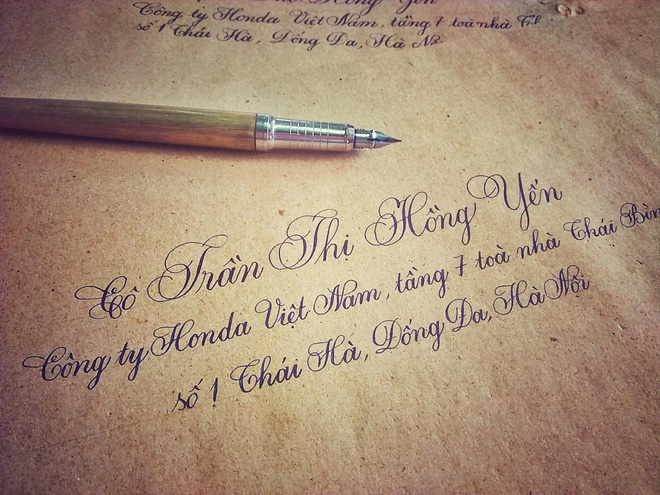 Hồng Yến
Công ty Honda Việt Nam, tầng 7 toà nhà
số 1 Thái Hà, Đống Đa, Hà
Cô Trần Thị Hồng Yến
Công ty Honda Việt Nam, tầng 7 toà nhà Thái Bìn
số 1 Thái Hà, Đống Đa, Hà Nội